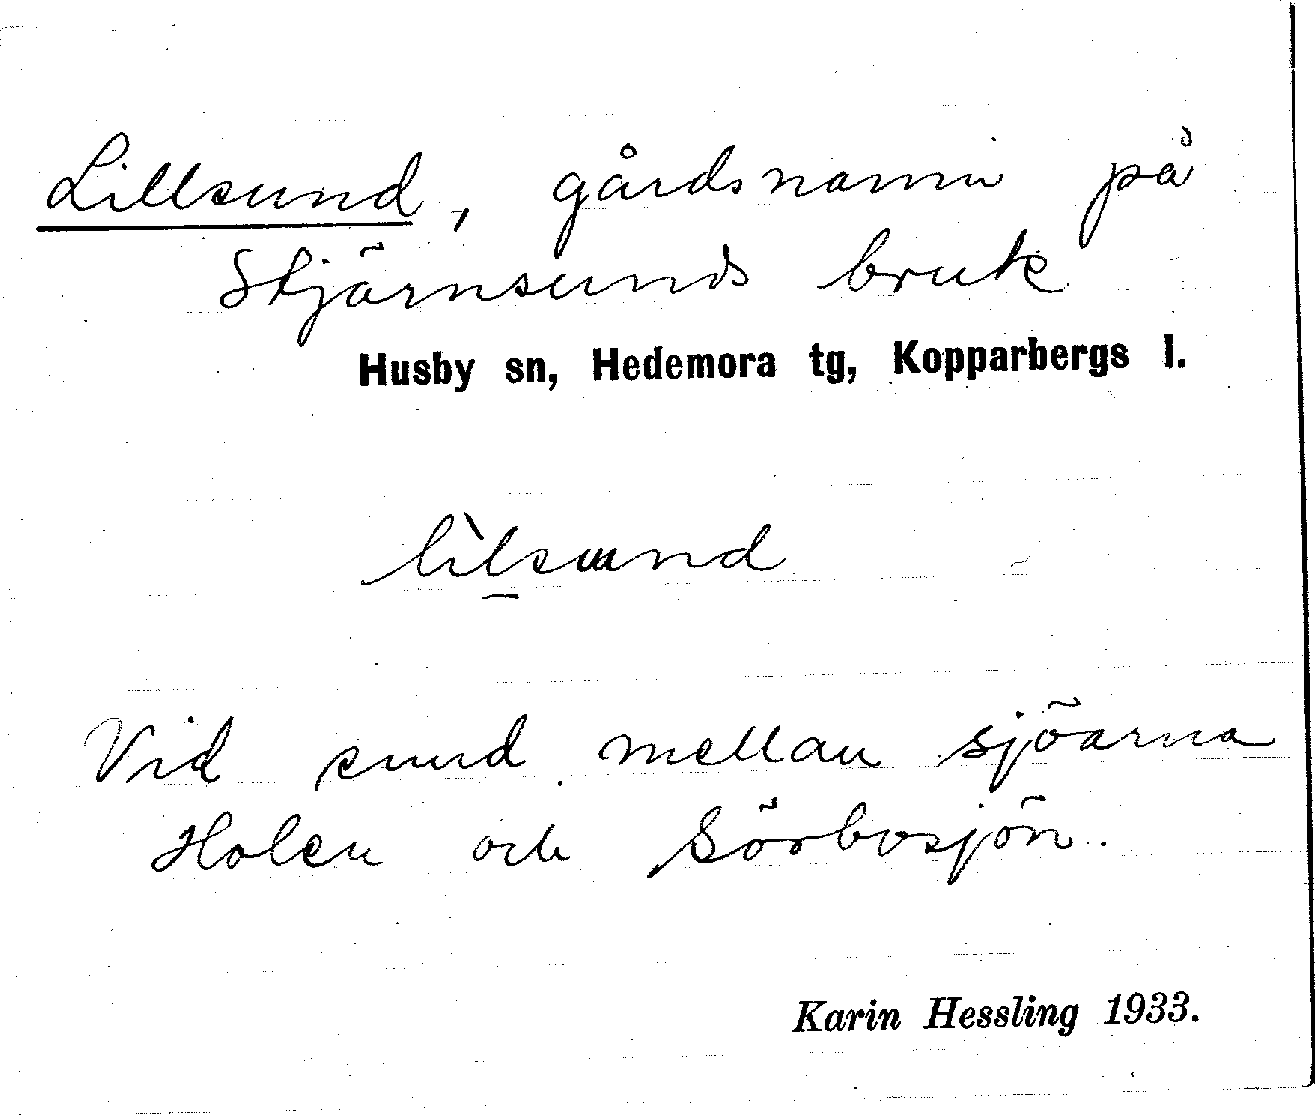 Lillsund, gårdsnamn på
Stjärnsunds bruk
Husby sn, Hedemora tg, Kopparbergs l.
lìlsund
Vid sund mellan sjöarna
Holen och Sörbosjön.
Karin Hessling 1933.